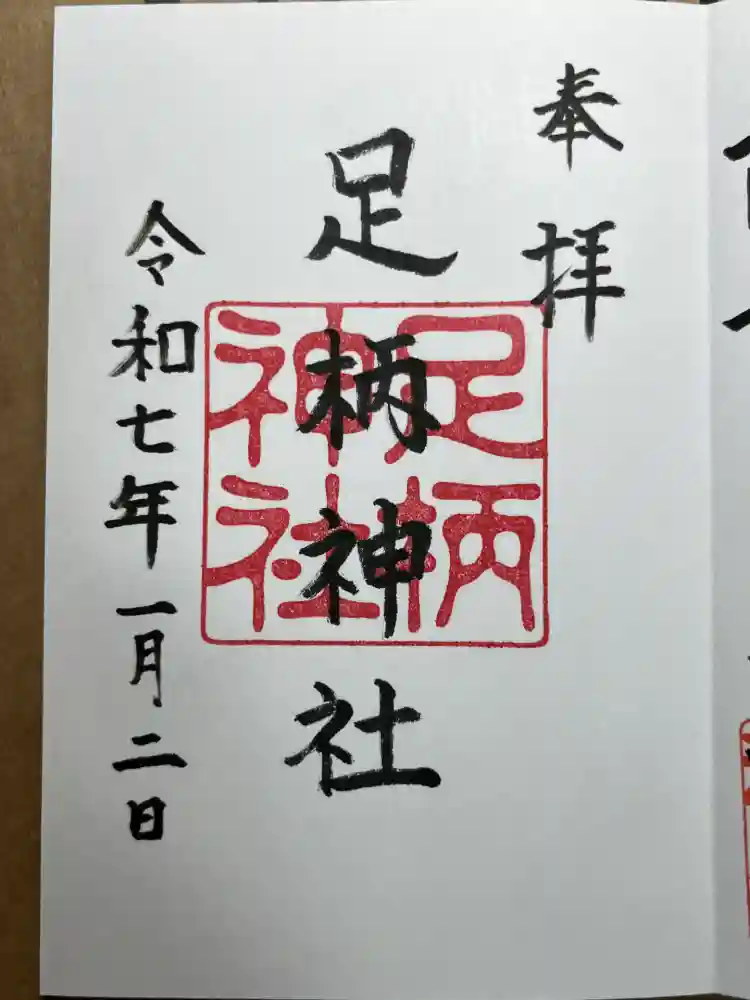 奉拝
足柄神社
足柄
神社
令和七年一月二日